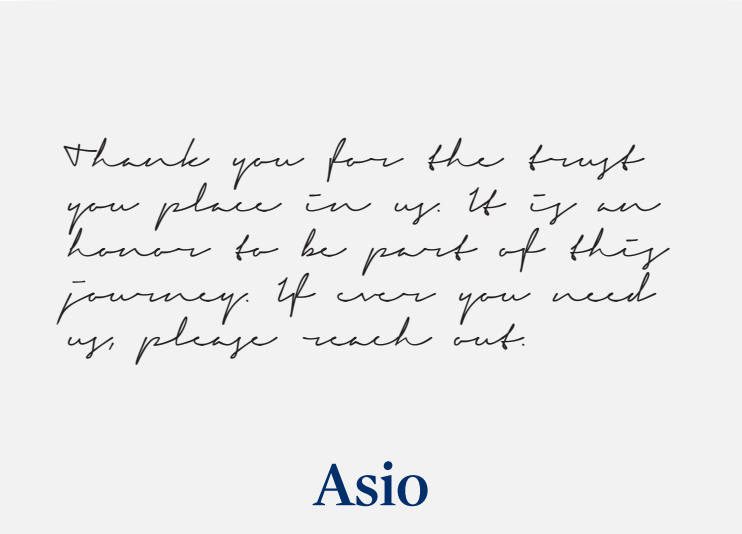 Thank you for the trust
you place in us. It is an
honor to be part of this
journey. If ever you need
us, please reach out.
Asio